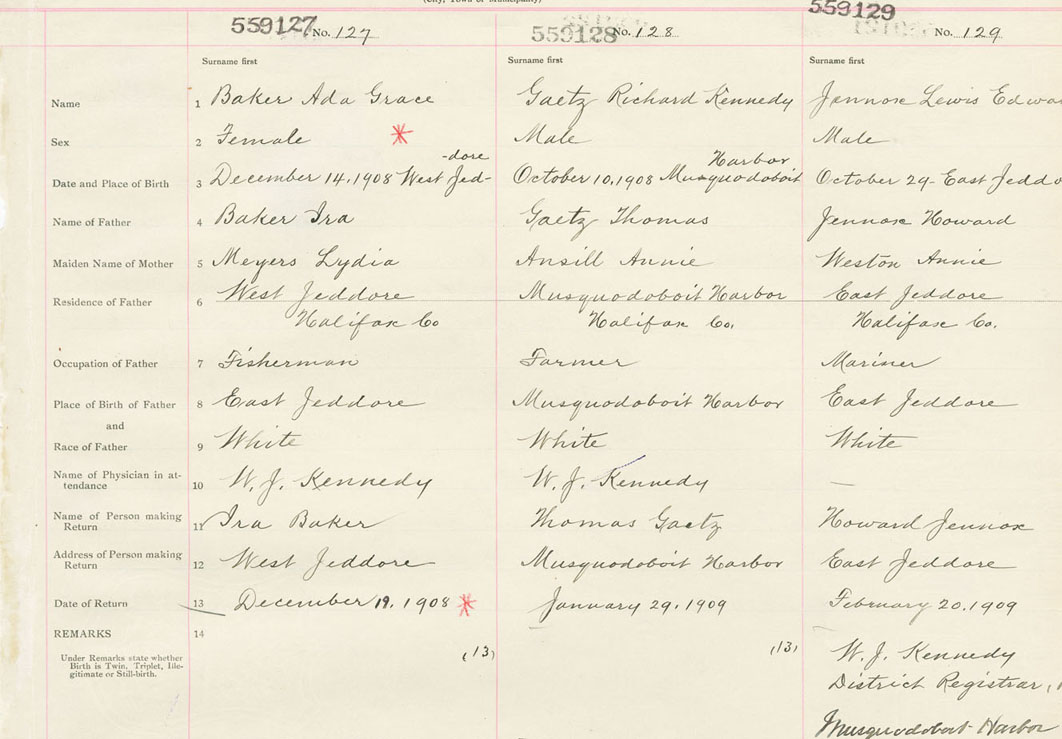 (City, Town or Municipality)
559127 No. 127 559128 No. 128 559129 No. 129
Surname first Surname first Surname first
Name 1 Baker Ada Grace Gaetz Richard Kennedy Jennox Lewis Edwa
Sex 2 Female * Male Male
-dore Harbor
Date and Place of Birth 3 December 14. 1908 West Jed- October 10. 1908 Musquodoboit October 29 - East Jeddo
Name of Father 4 Baker Ira Gaetz Thomas Jennox Howard
Maiden Name of Mother 5 Meyers Lydia Ansill Annie Weston Annie
Residence of Father 6 West Jeddore Musquodoboit Harbor East Jeddore
Halifax Co Halifax Co. Halifax Co.
Occupation of Father 7 Fisherman Farmer Mariner
Place of Birth of Father 8 East Jeddore Musquodoboit Harbor East Jeddore
and
Race of Father 9 White White White
Name of Physician in at-
tendance 10 W. J. Kennedy W. J. Kennedy —
Name of Person making
Return 11 Ira Baker Thomas Gaetz Howard Jennox
Address of Person making
Return 12 West Jeddore Musquodoboit Harbor East Jeddore
Date of Return 13 December 19. 1908 * January 29. 1909 February 20. 1909
REMARKS 14
Under Remarks state whether
Birth is Twin, Triplet, Ille-
gitimate or Still-birth.
(13) (13) W. J. Kennedy
District Registrar,
Musquodoboit Harbor